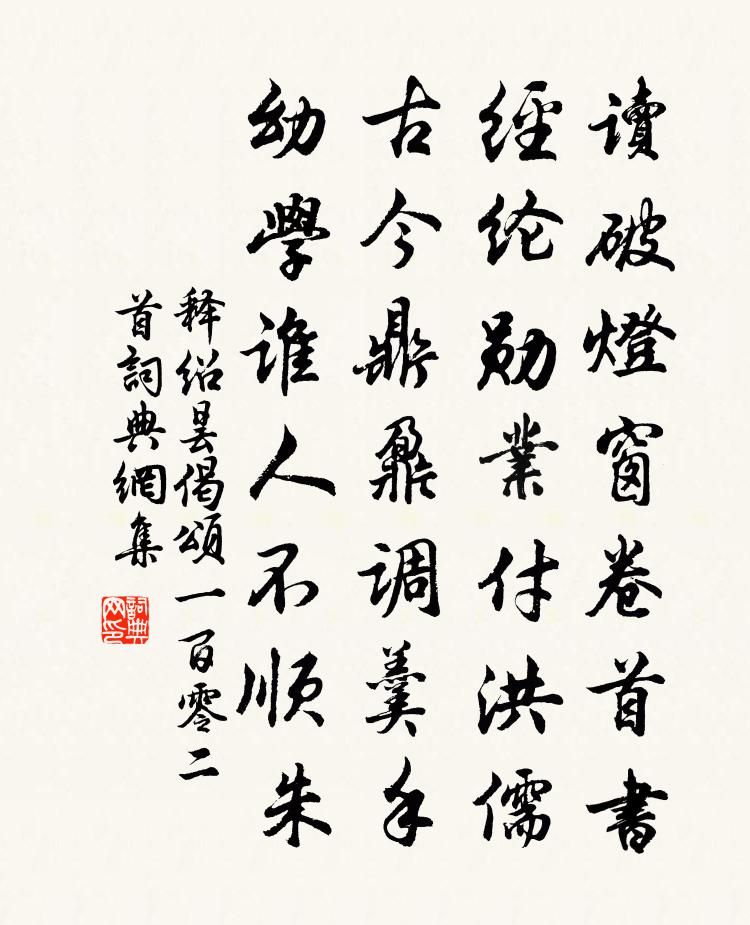 讀破燈窗卷首書
經纶勋業付洪儒
古今鼎鼐调羹手
幼學谁人不順朱
释绍昙偈頌一百零二
首詞典網集
詞典网印